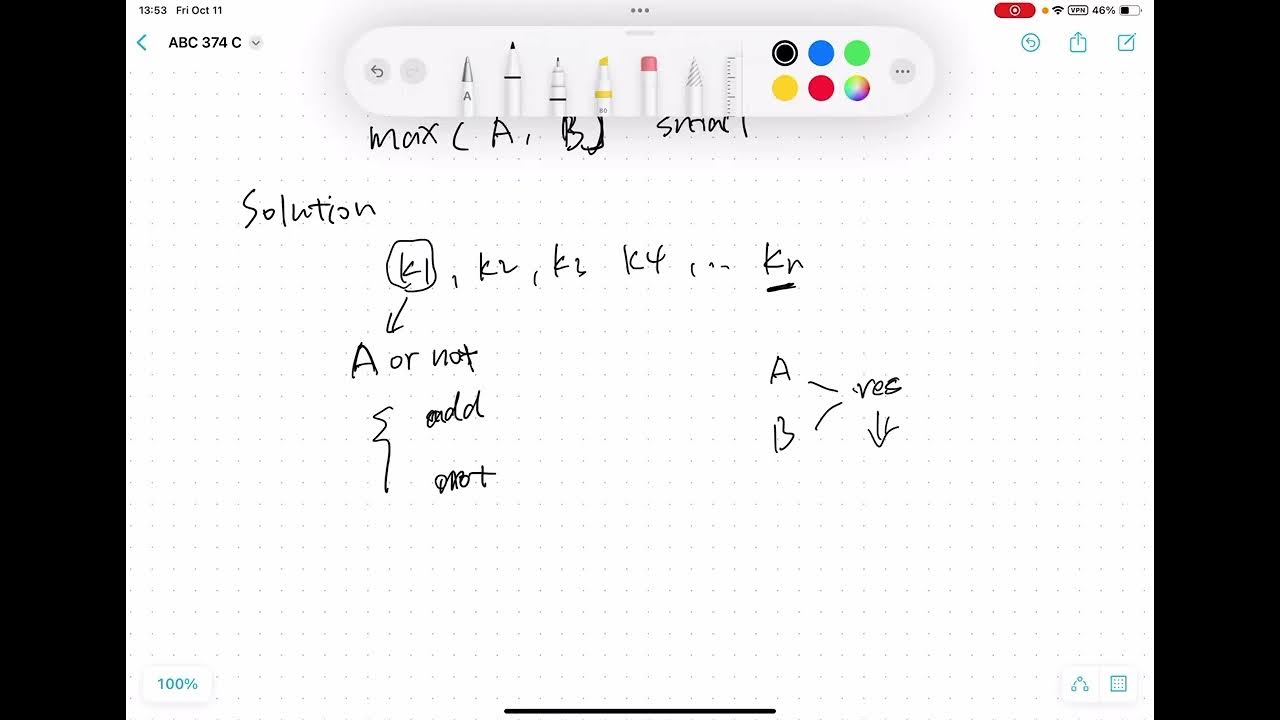 13:53 Fri Oct 11
VPN 46%
ABC 374 C
A
80
max ( A, B) small
Solution
k1, k2, k3 k4, ... kn
A or not
A
res
add
B
not
100%